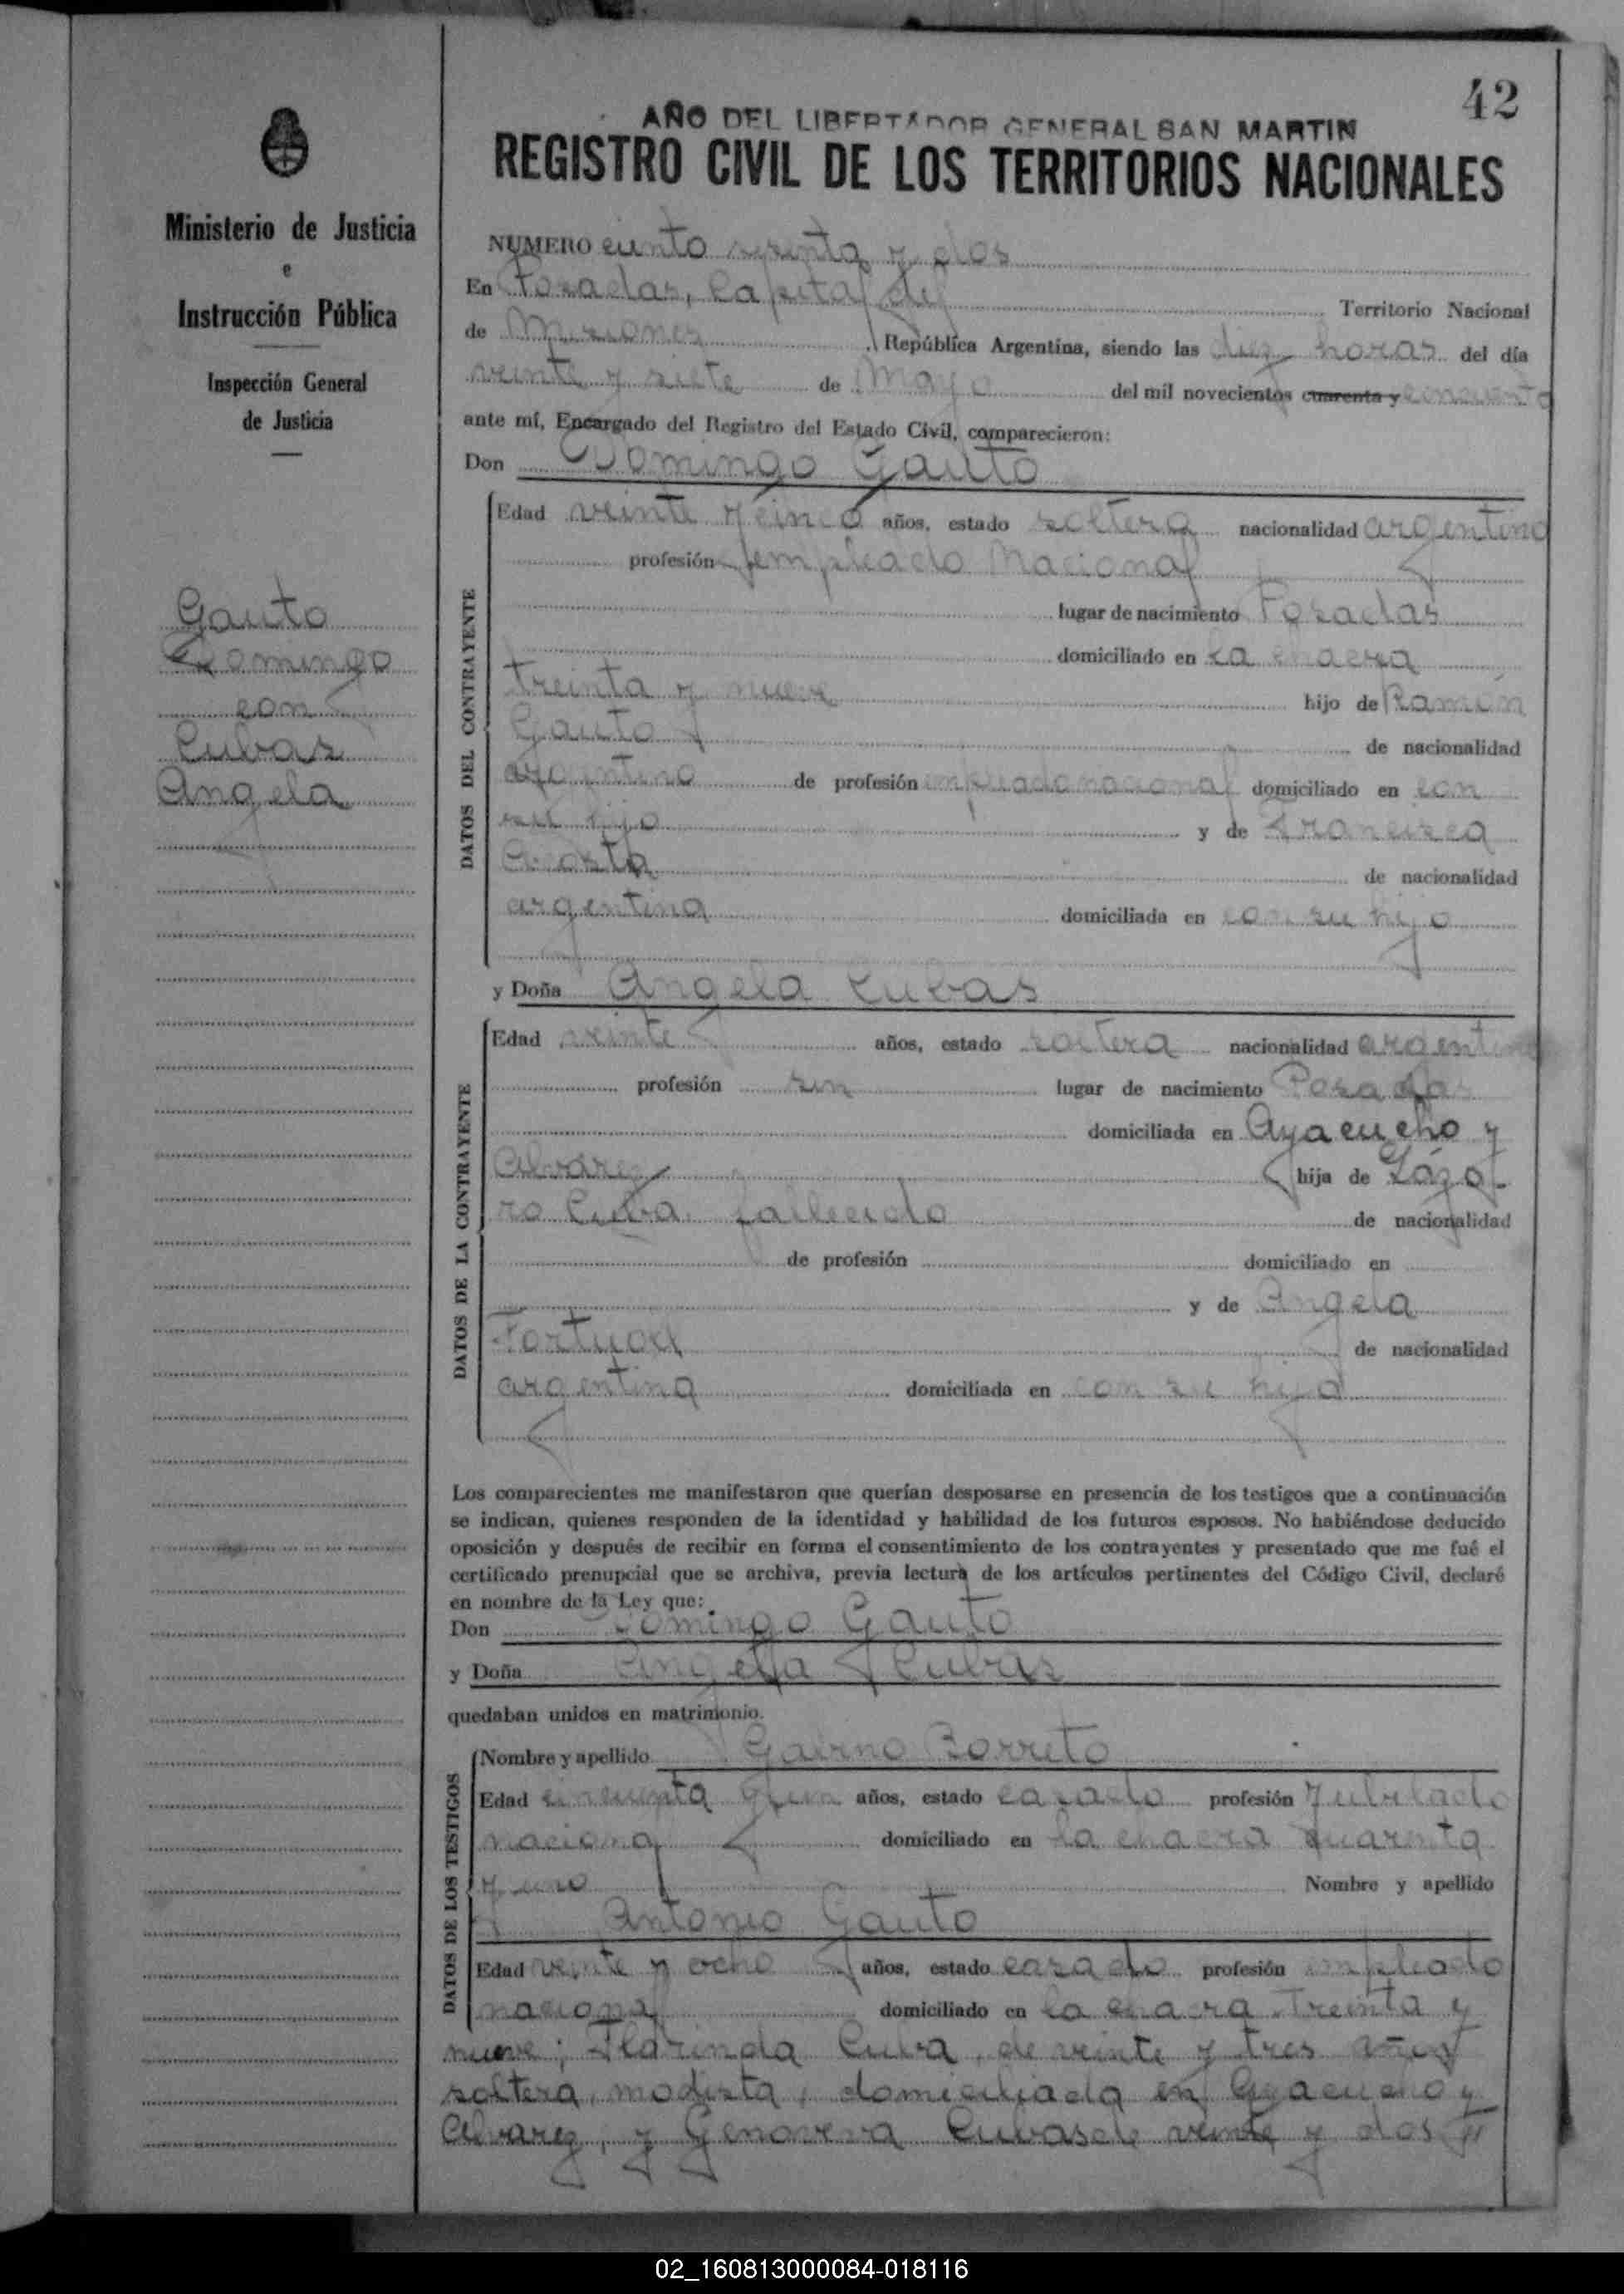 42
AÑO DEL LIBERTADOR GENERAL SAN MARTIN
REGISTRO CIVIL DE LOS TERRITORIOS NACIONALES
Ministerio de Justicia
e
Instrucción Pública
Inspección General
de Justicia
Gauto
Domingo
con
Cubas
Angela
NUMERO ciento y dos
En Posadas, Capital del Territorio Nacional
de Misiones República Argentina, siendo las diez horas del día
veinte y siete de Mayo del mil novecientos cuarenta y cincuenta
ante mí, Encargado del Registro del Estado Civil, comparecieron:
Don Domingo Gauto
DATOS DEL CONTRAYENTE
Edad veinte y cinco años, estado soltero nacionalidad argentino
profesión empleado Nacional
lugar de nacimiento Posadas
domiciliado en la chacra
treinta y nueve hijo de Ramón
Gauto de nacionalidad
argentino de profesión empleado nacional domiciliado en con
su hijo y de Francisca
Acosta de nacionalidad
argentina domiciliada en con su hijo
y Doña Angela Cubas
DATOS DE LA CONTRAYENTE
Edad veinte años, estado soltera nacionalidad argentina
profesión sin lugar de nacimiento Posadas
domiciliada en Ayacucho y
Alvarez hija de Lázo
ro Cuba fallecido de nacionalidad
de profesión domiciliado en
y de Angela
de nacionalidad
argentina domiciliada en con su hija
Los comparecientes me manifestaron que querían desposarse en presencia de los testigos que a continuación
se indican, quienes responden de la identidad y habilidad de los futuros esposos. No habiéndose deducido
oposición y después de recibir en forma el consentimiento de los contrayentes y presentado que me fué el
certificado prenupcial que se archiva, previa lectura de los artículos pertinentes del Código Civil, declaré
en nombre de la Ley que:
Don Domingo Gauto
y Doña Angela Cubas
quedaban unidos en matrimonio.
DATOS DE LOS TESTIGOS
Nombre y apellido Borreto
Edad cincuenta y un años, estado casado profesión Jubilado
nacional domiciliado en la chacra cuarenta
y uno Nombre y apellido
Antonio Gauto
Edad veinte y ocho años, estado casado profesión empleado
nacional domiciliado en la chacra treinta y
nueve; Florinda Cuba, de veinte y tres años
soltera, modista, domiciliada en Ayacucho y
Alvarez, y Genoveva Cubas de veinte y dos
02_160813000084-018116